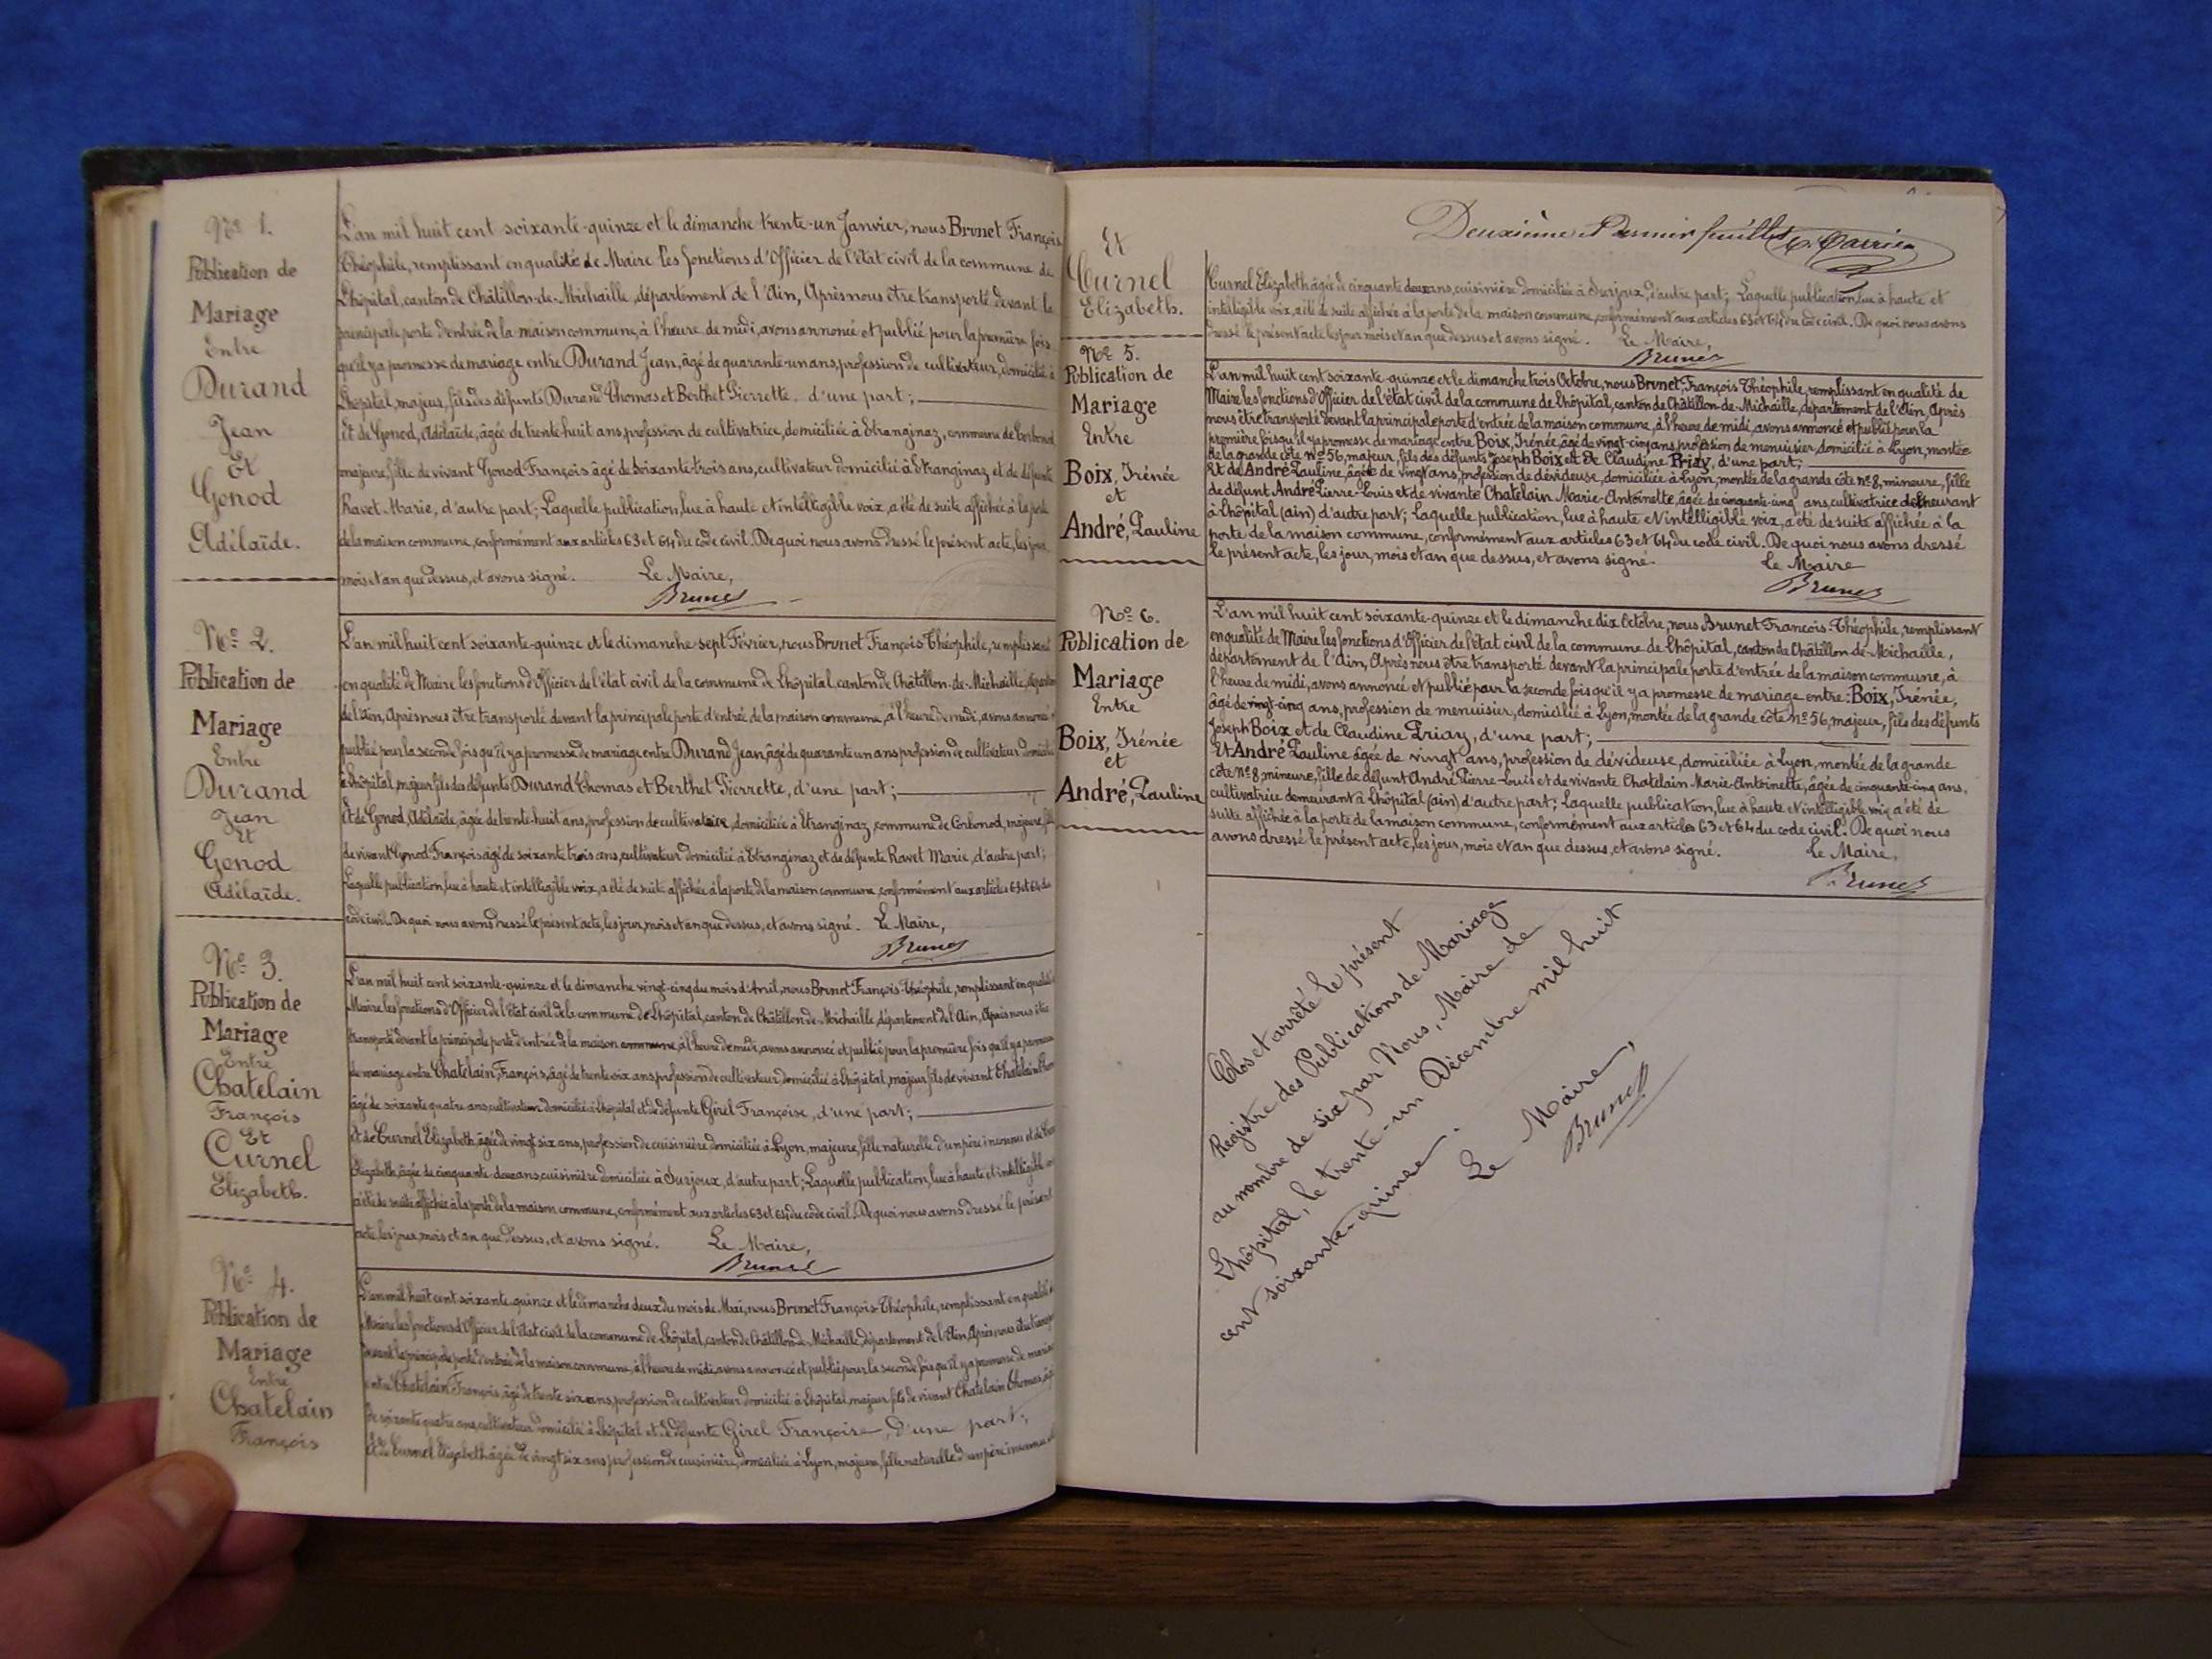 Nº 1.
Publication de
Mariage
Entre
Durand
Jean
Et
Gonod
Adélaïde.
L'an mil huit cent soixante-quinze et le dimanche trente-un Janvier, nous Brunet François
Théophile, remplissant en qualité de Maire les fonctions d'Officier de l'état civil de la commune de
Lhôpital, canton de Châtillon-de-Michaille, département de l'Ain, Après nous être transporté devant la
principale porte d'entrée de la maison commune, à l'heure de midi, avons annoncé et publié pour la première fois
qu'il y a promesse de mariage entre Durand Jean, âgé de quarante-un ans, profession de cultivateur, domicilié à
Lhôpital, majeur, fils des défunts Durand Thomas et Berthet Pierrette, d'une part;
Et de Gonod, Adélaïde, âgée de trente-huit ans, profession de cultivatrice, domiciliée à Etranginaz, commune de Corbonod
majeure, fille de vivant Gonod François âgé de soixante-trois ans, cultivateur domicilié à Etranginaz et de défunte
Ravet Marie, d'autre part; Laquelle publication, lue à haute et intelligible voix, a été de suite affichée à la porte
de la maison commune, conformément aux articles 63 et 64 du code civil. De quoi nous avons dressé le présent acte, les jour
mois et an que dessus, et avons signé. Le Maire,
Brunet
Nº 2.
Publication de
Mariage
Entre
Durand
Jean
Et
Gonod
Adélaïde.
L'an mil huit cent soixante-quinze et le dimanche sept Février, nous Brunet François-Théophile, remplissant
en qualité de Maire les fonctions d'Officier de l'état civil de la commune de Lhôpital, canton de Châtillon-de-Michaille, département
de l'Ain, Après nous être transporté devant la principale porte d'entrée de la maison commune, à l'heure de midi, avons annoncé
publié pour la seconde fois qu'il y a promesse de mariage entre Durand Jean, âgé de quarante un ans profession de cultivateur domicilié
à Lhôpital, majeur fils des défunts Durand Thomas et Berthet Pierrette, d'une part;
Et de Gonod, Adélaïde, âgée de trente-huit ans, profession de cultivatrice, domiciliée à Etranginaz, commune de Corbonod, majeure, fille
de vivant Gonod François âgé de soixante trois ans, cultivateur domicilié à Etranginaz et de défunte Ravet Marie, d'autre part;
Laquelle publication, lue à haute et intelligible voix, a été de suite affichée à la porte de la maison commune, conformément aux articles 63 et 64 du
code civil. De quoi nous avons dressé le présent acte, les jour, mois et an que dessus, et avons signé. Le Maire,
Brunet
Nº 3.
Publication de
Mariage
Entre
Chatelain
François
Et
Curnel
Elizabeth.
L'an mil huit cent soixante-quinze et le dimanche vingt-cinq du mois d'Avril, nous Brunet François-Théophile, remplissant en qualité
Maire les fonctions d'Officier de l'état civil de la commune de Lhôpital, canton de Châtillon-de-Michaille, département de l'Ain, Après nous être
transporté devant la principale porte d'entrée de la maison commune, à l'heure de midi, avons annoncé et publié pour la première fois qu'il y a promesse
de mariage entre Chatelain, François, âgé de trente six ans, profession de cultivateur, domicilié à Lhôpital, majeur fils de vivant Chatelain
âgé de soixante quatre ans, cultivateur domicilié à Lhôpital et de défunte Girel Françoise, d'une part;
Et de Curnel Elizabeth, âgée de vingt six ans, profession de cuisinière, domiciliée à Lyon, majeure, fille naturelle d'un père inconnu et de
Elizabeth, âgée de cinquante-deux ans, cuisinière domiciliée à Surjoux, d'autre part; Laquelle publication, lue à haute et intelligible
a été de suite affichée à la porte de la maison commune, conformément aux articles 63 et 64 du code civil. De quoi nous avons dressé le présent
acte, les jour, mois et an que dessus, et avons signé. Le Maire,
Brunet
Nº 4.
Publication de
Mariage
Entre
Chatelain
François
L'an mil huit cent soixante-quinze et le dimanche deux du mois de Mai, nous Brunet François-Théophile, remplissant en qualité
Maire les fonctions d'Officier de l'état civil de la commune de Lhôpital, canton de Châtillon-de-Michaille, département de l'Ain, Après nous être
devant la principale porte d'entrée de la maison commune, à l'heure de midi, avons annoncé et publié pour la seconde fois qu'il y a promesse de
entre Chatelain François, âgé de trente six ans, profession de cultivateur domicilié à Lhôpital, majeur fils de vivant Chatelain Thomas,
de soixante quatre ans, cultivateur domicilié à Lhôpital et de défunte Girel Françoise, d'une part;
Et de Curnel Elizabeth âgée de vingt six ans profession de cuisinière, domiciliée à Lyon, majeure, fille naturelle d'un père inconnu
Deuxième et Dernier feuillet
Et
Curnel
Elizabeth.
Curnel Elizabeth âgée de cinquante deux ans, cuisinière domiciliée à Surjoux, d'autre part; Laquelle publication, lue à haute et
intelligible voix, a été de suite affichée à la porte de la maison commune, conformément aux articles 63 et 64 du code civil. De quoi nous avons
dressé le présent acte les jour mois et an que dessus et avons signé. Le Maire,
Brunet
Nº 5.
Publication de
Mariage
Entre
Boix, Irénée
et
André, Pauline
L'an mil huit cent soixante-quinze et le dimanche trois Octobre, nous Brunet, François Théophile, remplissant en qualité de
Maire les fonctions d'Officier de l'état civil de la commune de Lhôpital, canton de Châtillon-de-Michaille, département de l'Ain, Après
nous être transporté devant la principale porte d'entrée de la maison commune, à l'heure de midi, avons annoncé et publié pour la
première fois qu'il y a promesse de mariage entre Boix, Irénée, âgé de vingt-cinq ans, profession de menuisier, domicilié à Lyon, montée
de la grande côte Nº 56, majeur, fils des défunts Joseph Boix et de Claudine Priay, d'une part;
Et de André Pauline, âgée de vingt ans, profession de dévideuse, domiciliée à Lyon, montée de la grande côte nº 8, mineure, fille
de défunt André Pierre-Louis et de vivante Chatelain Marie-Antoinette, âgée de cinquante-cinq ans, cultivatrice demeurant
à Lhôpital (ain) d'autre part; Laquelle publication, lue à haute et intelligible voix, a été de suite affichée à la
porte de la maison commune, conformément aux articles 63 et 64 du code civil. De quoi nous avons dressé
le présent acte, les jour, mois et an que dessus, et avons signé. Le Maire
Brunet
Nº 6.
Publication de
Mariage
Entre
Boix, Irénée
et
André, Pauline
L'an mil huit cent soixante-quinze et le dimanche dix Octobre, nous Brunet François-Théophile, remplissant
en qualité de Maire les fonctions d'Officier de l'état civil de la commune de Lhôpital, canton de Châtillon-de-Michaille,
département de l'Ain, Après nous être transporté devant la principale porte d'entrée de la maison commune, à
l'heure de midi, avons annoncé et publié pour la seconde fois qu'il y a promesse de mariage entre: Boix, Irénée,
âgé de vingt-cinq ans, profession de menuisier, domicilié à Lyon, montée de la grande côte Nº 56, majeur, fils des défunts
Joseph Boix et de Claudine Priay, d'une part;
Et André Pauline âgée de vingt ans, profession de dévideuse, domiciliée à Lyon, montée de la grande
côte Nº 8, mineure, fille de défunt André Pierre-Louis et de vivante Chatelain Marie-Antoinette, âgée de cinquante-cinq ans,
cultivatrice demeurant à Lhôpital (ain) d'autre part; Laquelle publication, lue à haute et intelligible voix, a été de
suite affichée à la porte de la maison commune, conformément aux articles 63 et 64 du code civil. De quoi nous
avons dressé le présent acte, les jour, mois et an que dessus, et avons signé. Le Maire,
Brunet
Clos et arrêté le présent
Registre des Publications de Mariage
au nombre de six par Nous, Maire de
Lhôpital, le trente-un Décembre mil huit
cent soixante-quinze.
Le Maire,
Brunet